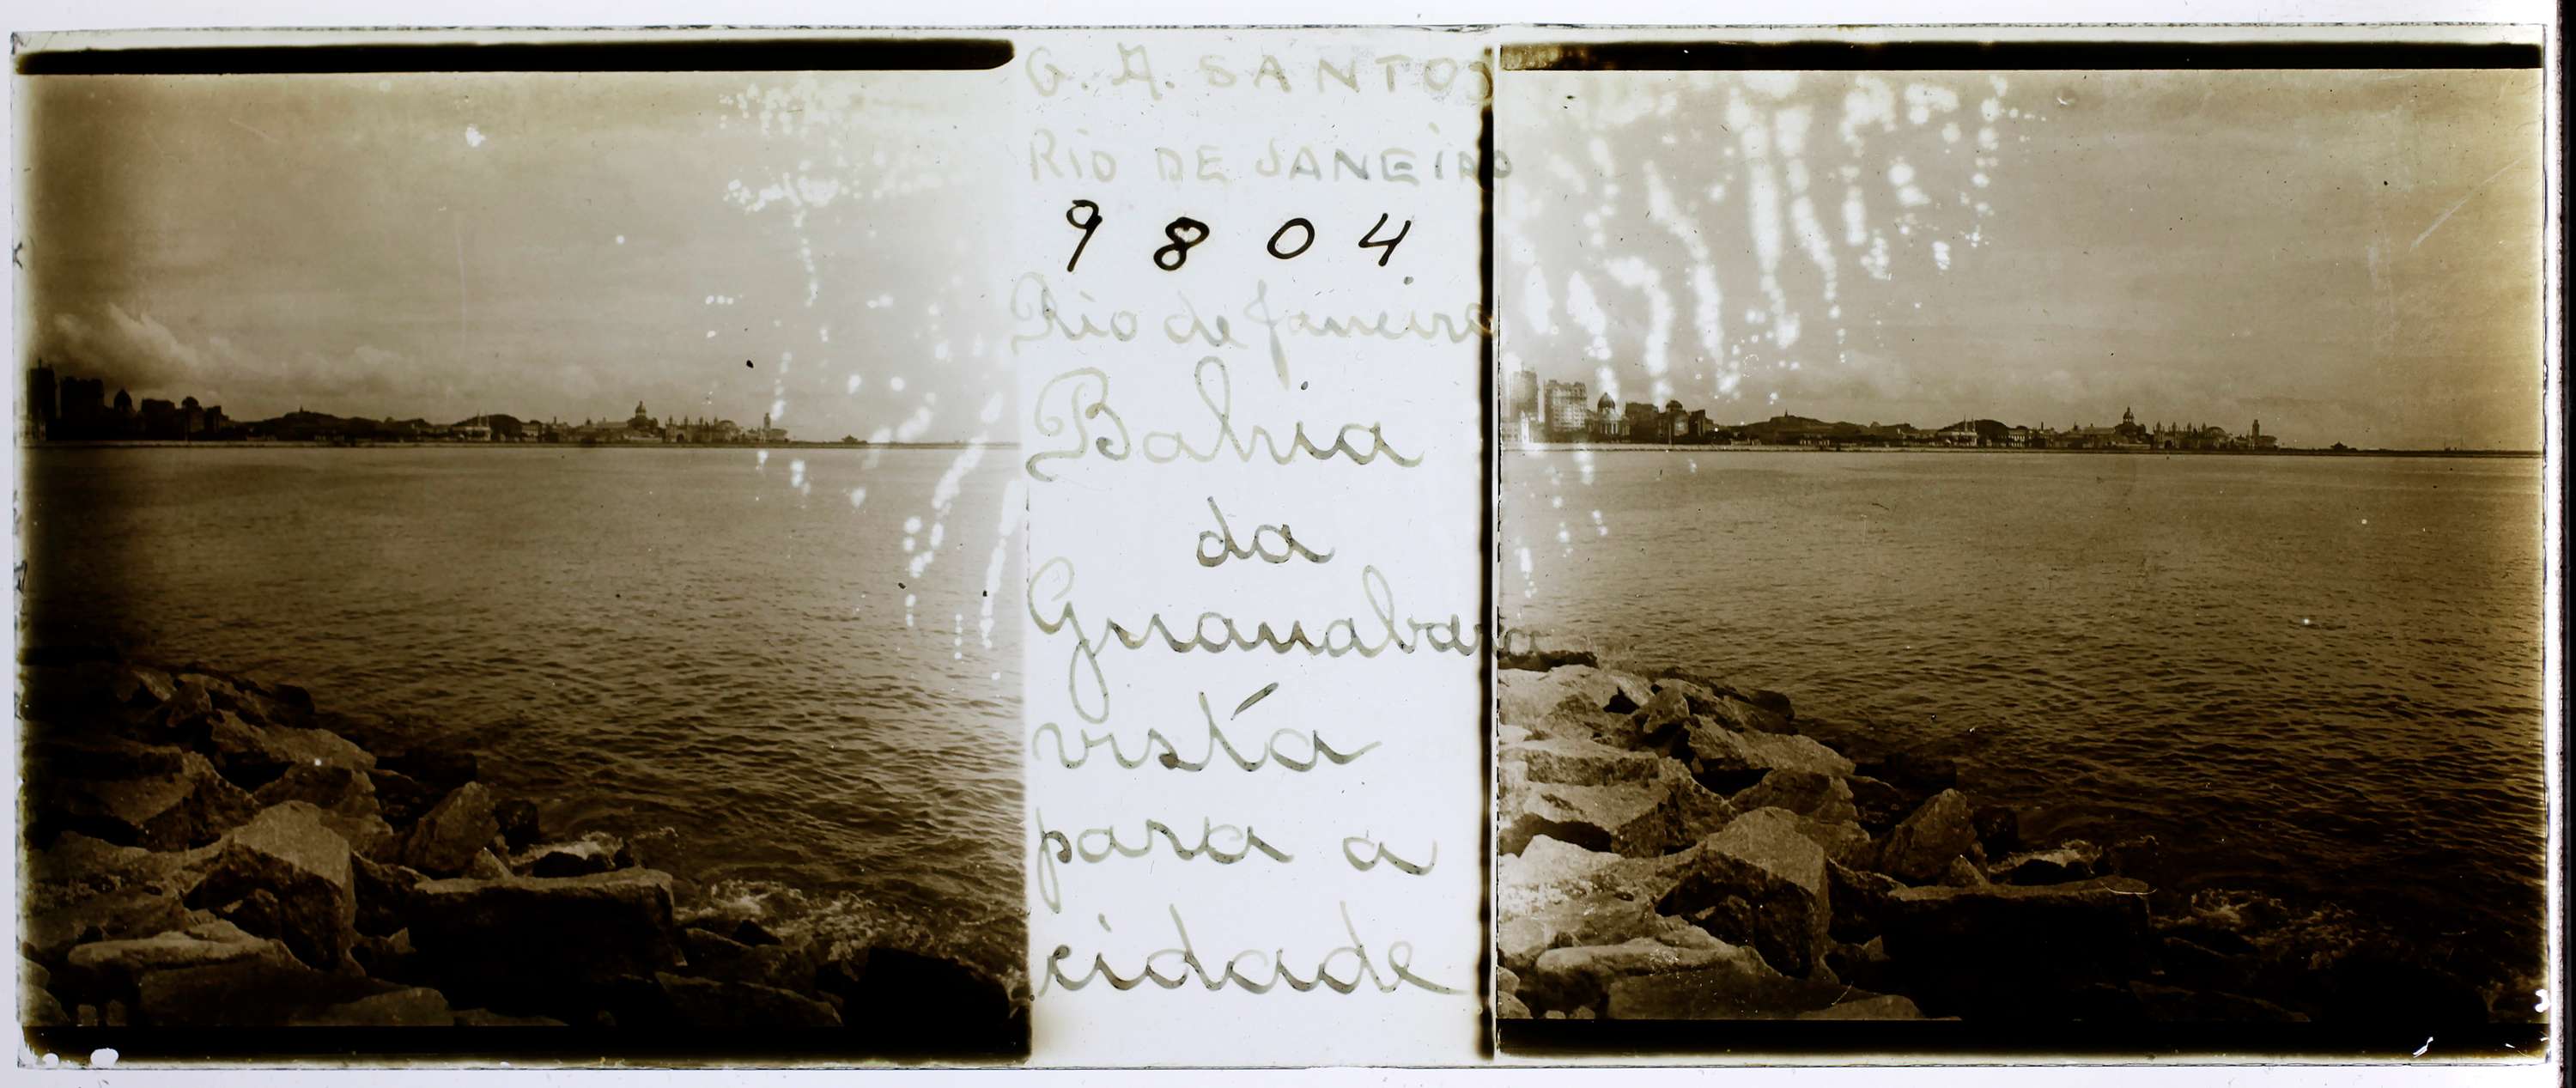 G. A. SANTOS
RiO DE JANEiRO
9804
Rio de Janeiro
Bahia
da
Guanabara
vista
para a
cidade